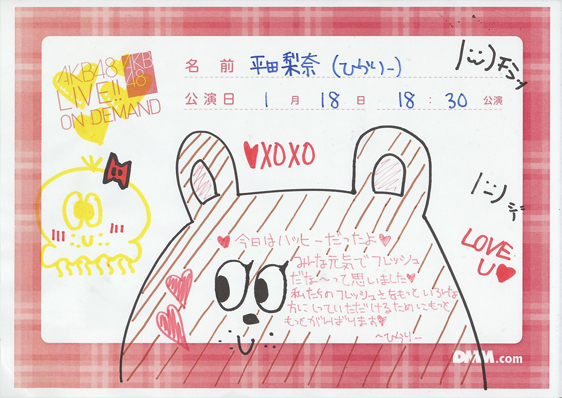 AKB48
LIVE!!
ON DEMAND
AKB
48
名前 平田梨奈 (ひらりー)
公演日 1月18日 18:30 公演
チラッ
♥XOXO
ジー
LOVE
U♥
♥今日はハッピーだったよ♥
みな元気でフレッシュ
だな～って思いました♥
私たちのフレッシュさをもっといろんな
方にしっていただけるためにもっと
もっとがんばります♥
～ひらりー
DMM.com